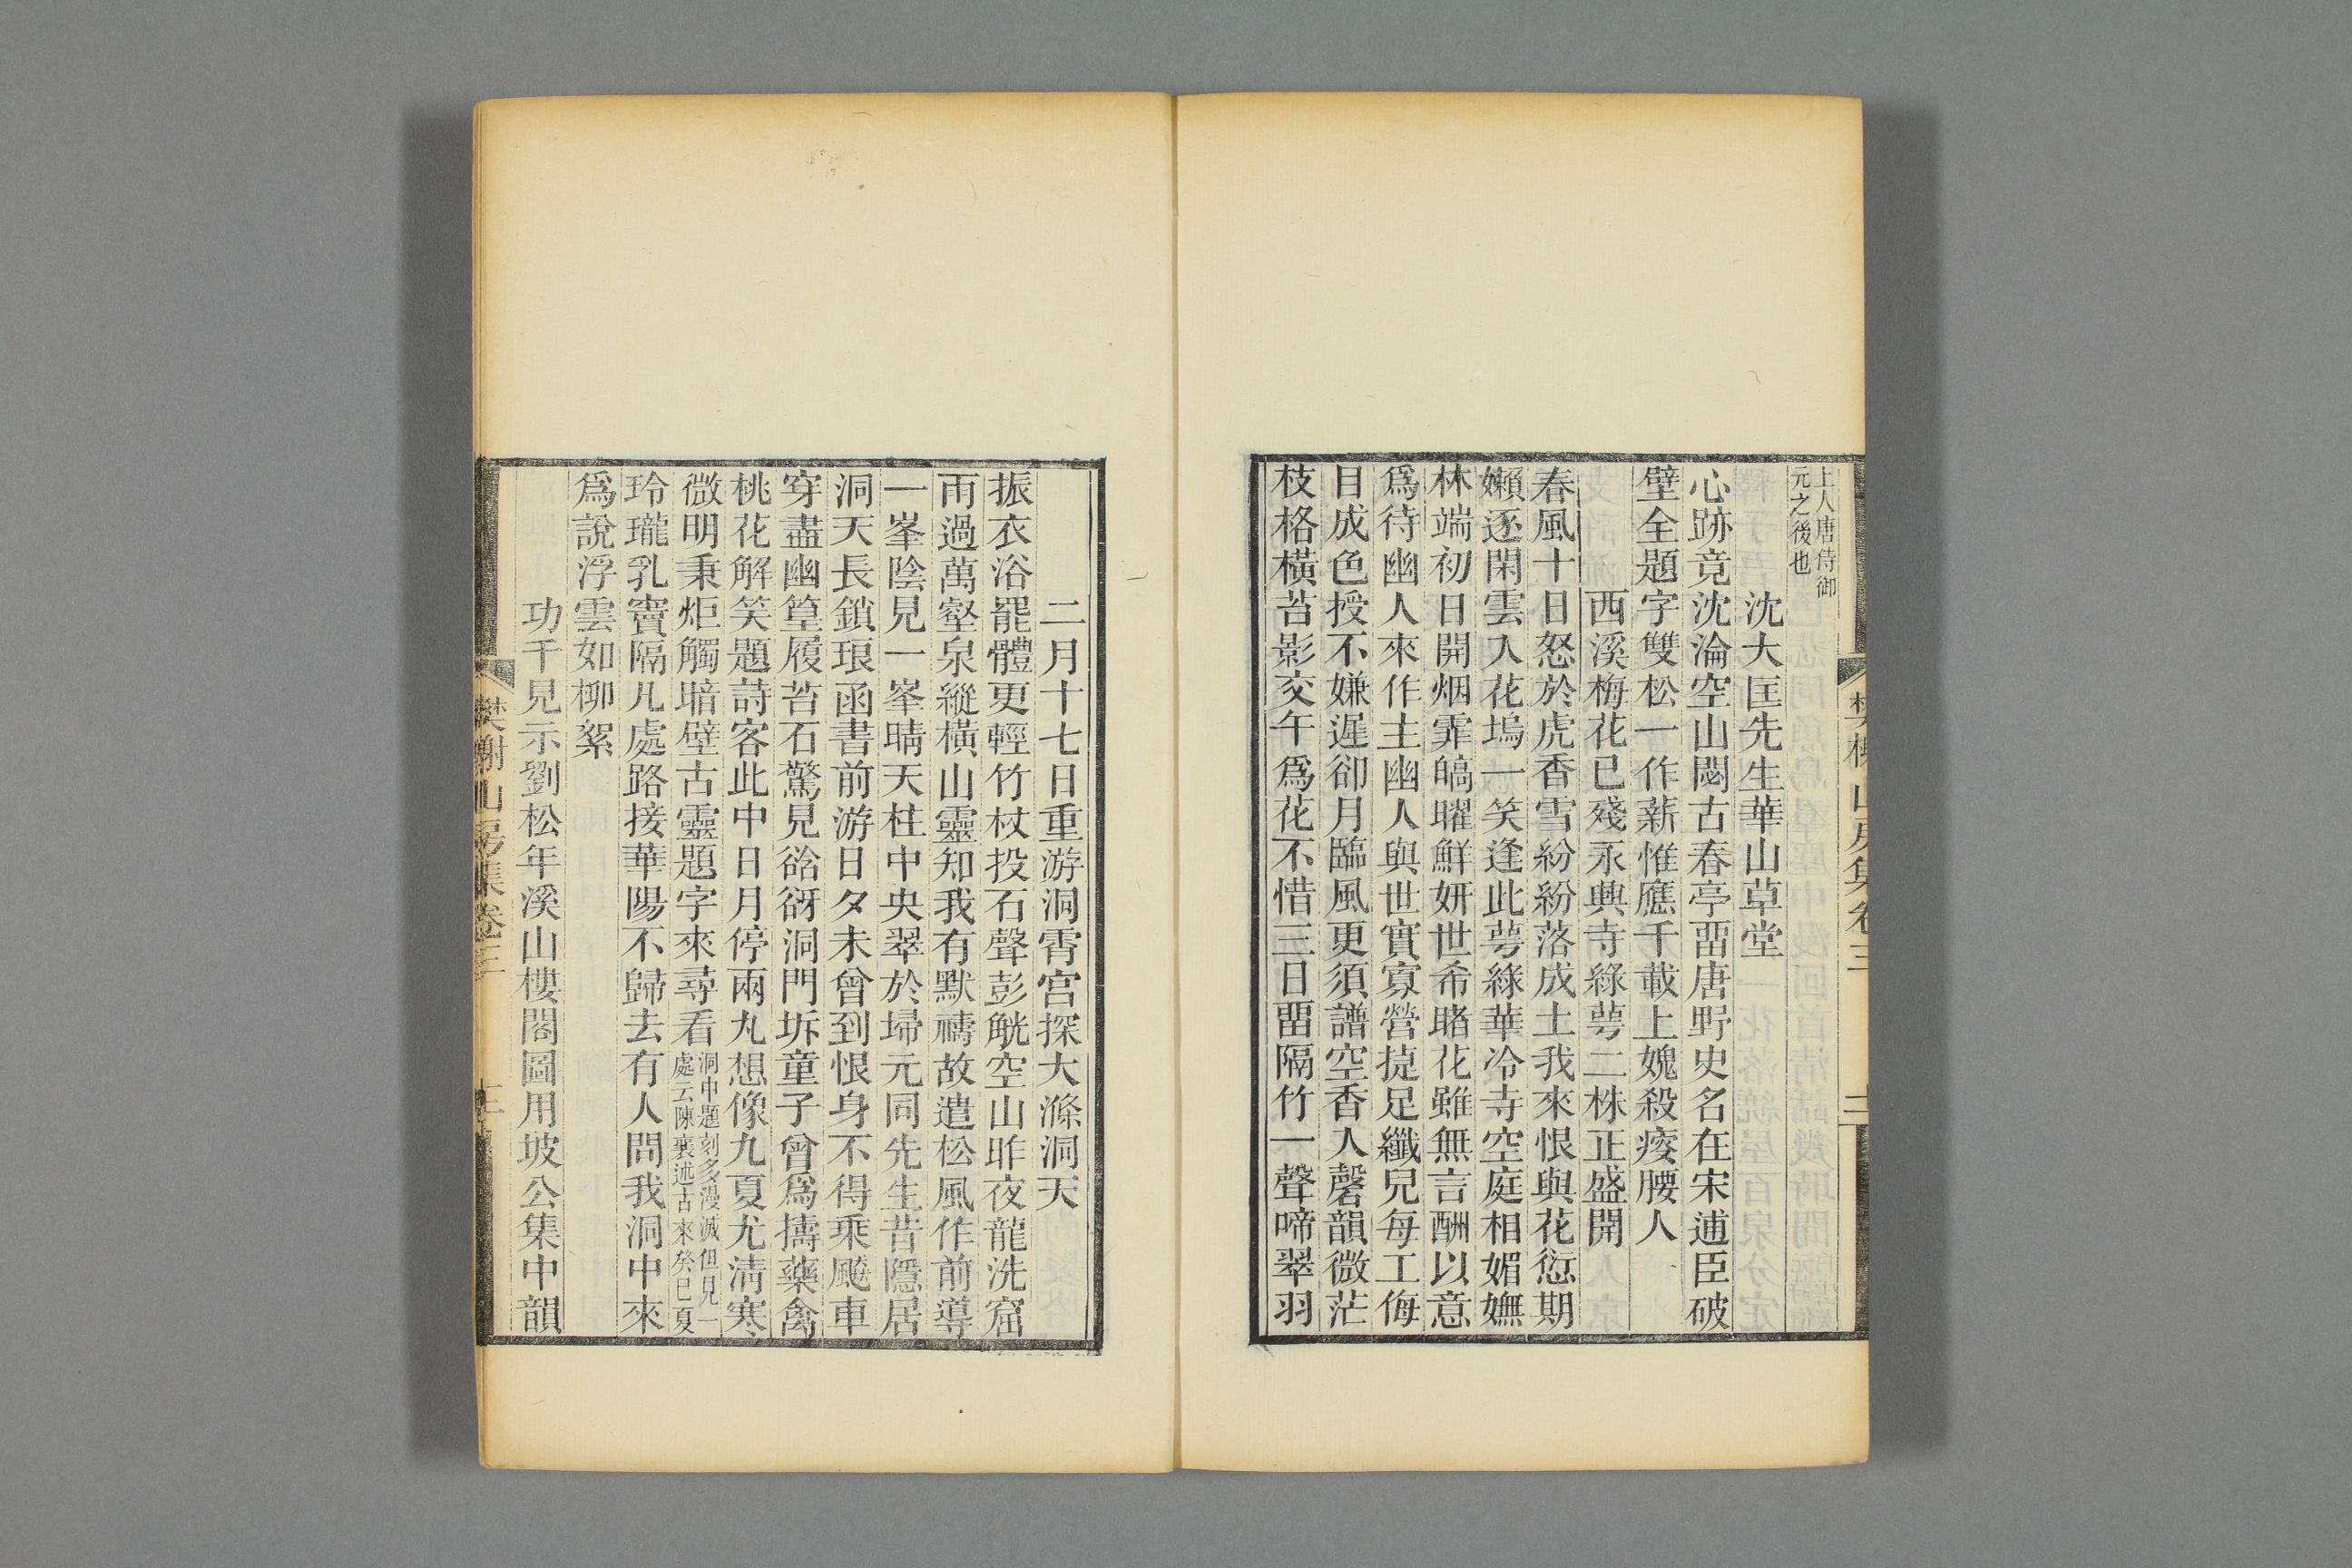 上人唐侍御
元之後也
沈大匡先生華山草堂
心跡竟沈淪空山閟古春亭畱唐野史名在宋逋臣破
壁全題字雙松一作薪惟應千載上媿殺痠腰人
西溪梅花已殘永興寺綠萼二株正盛開
春風十日怒於虎香雪紛紛落成土我來恨與花愆期
嬾逐閑雲入花塢一笑逢此萼綠華冷寺空庭相媚嫵
林端初日開烟霏皜曜鮮妍世希睹花雖無言酬以意
爲待幽人來作主幽人與世實寡營揵足纖兒每工侮
目成色授不嫌遲卻月臨風更須譜空香入磬韻微茫
枝格橫苔影交午爲花不惜三日畱隔竹一聲啼翠羽
樊榭山房集卷三
二月十七日重游洞霄宮探大滌洞天
振衣浴罷體更輕竹杖投石聲彭觥空山昨夜龍洗窟
雨過萬壑泉縱橫山靈知我有默禱故遣松風作前導
一峯陰見一峯晴天柱中央翠於埽元同先生昔隱居
洞天長鎖琅函書前游日夕未曾到恨身不得乘飈車
穿盡幽篁履苔石驚見谽谺洞門坼童子曾爲擣藥禽
桃花解笑題詩客此中日月停兩丸想像九夏尤淸寒
微明秉炬觸暗壁古靈題字來尋看洞中題刻多漫滅但見一
處云陳襄述古來癸巳夏
玲瓏乳竇隔凡處路接華陽不歸去有人問我洞中來
爲說浮雲如柳絮
功千見示劉松年溪山樓閣圖用坡公集中韻
樊榭山房集卷三